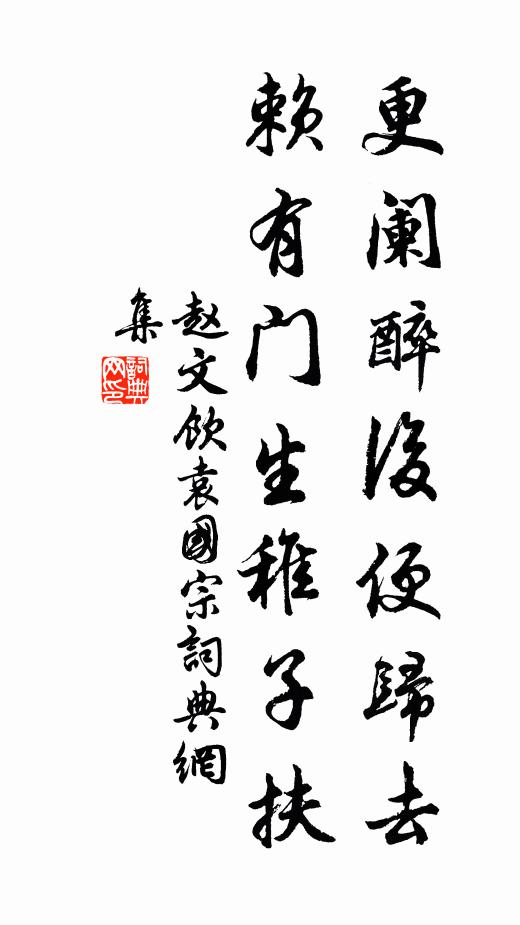 更阑醉後便歸去
赖有门生稚子扶
赵文飲袁國宗詞典網
集
詞典
网印